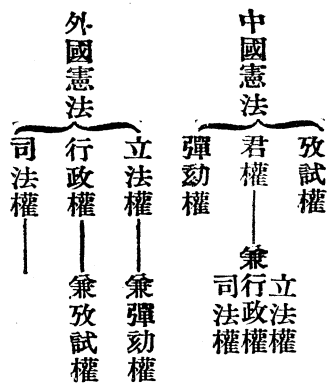 中國憲法
攷試權
君權
立法權
兼行政權
司法權
彈劾權
外國憲法
立法權
兼彈劾權
行政權
兼攷試權
司法權